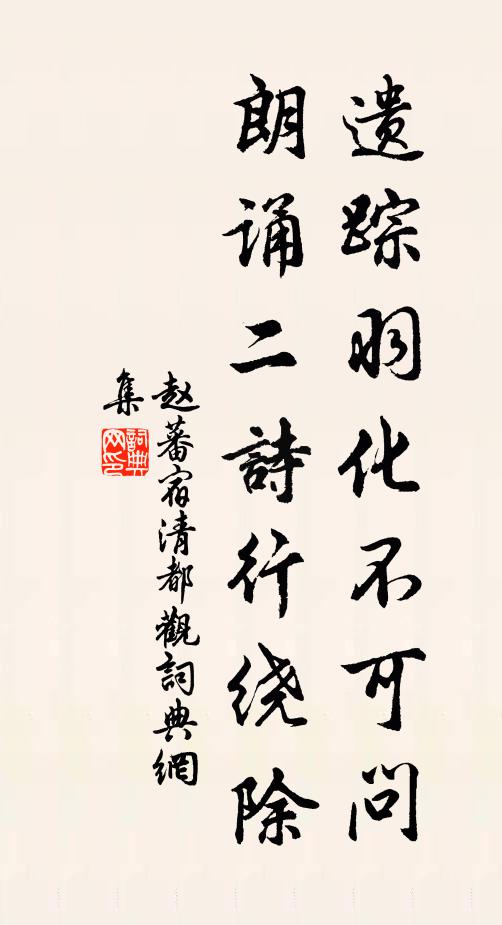 遗踪羽化不可问
朗诵二詩行绕除
赵蕃宿清都觀詞典網
集
詞典
网